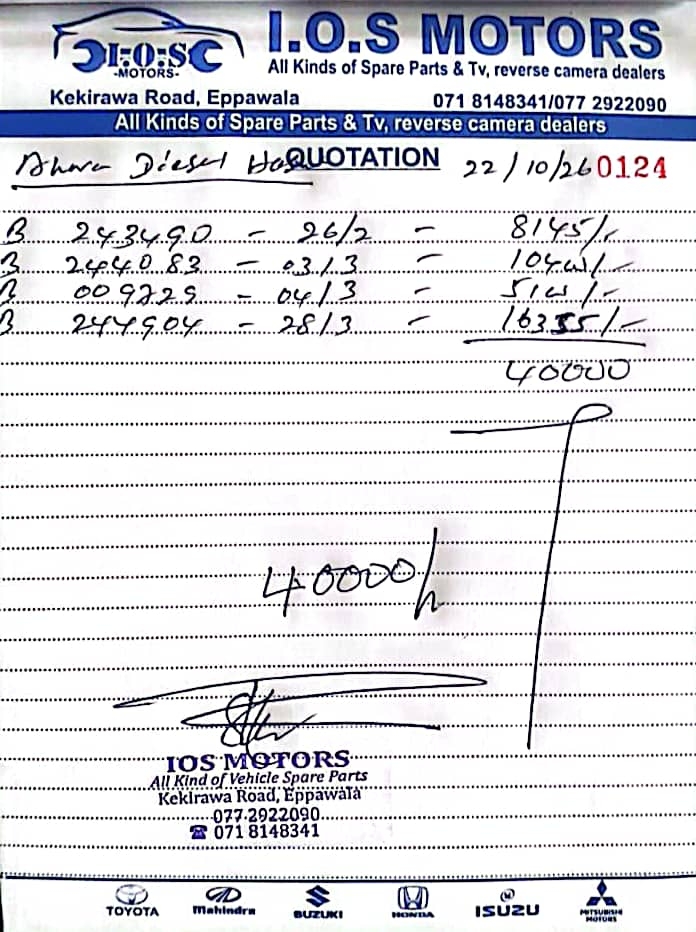 I.O.S MOTORS
I.O.S
-MOTORS-
All Kinds of Spare Parts & Tv, reverse camera dealers
Kekirawa Road, Eppawala 071 8148341/077 2922090
All Kinds of Spare Parts & Tv, reverse camera dealers
Diesel QUOTATION 22/10/26 0124
B 243490 - 26/2 - 8145/-
B 244083 - 03/3 - 10400/-
B 009729 - 04/3 - 5100/-
B 244904 - 28/3 - 16355/-
40000
40000/-
IOS MOTORS
All Kind of Vehicle Spare Parts
Kekirawa Road, Eppawala
077 2922090
☎ 071 8148341
TOYOTA Mahindra SUZUKI HONDA ISUZU MITSUBISHI MOTORS